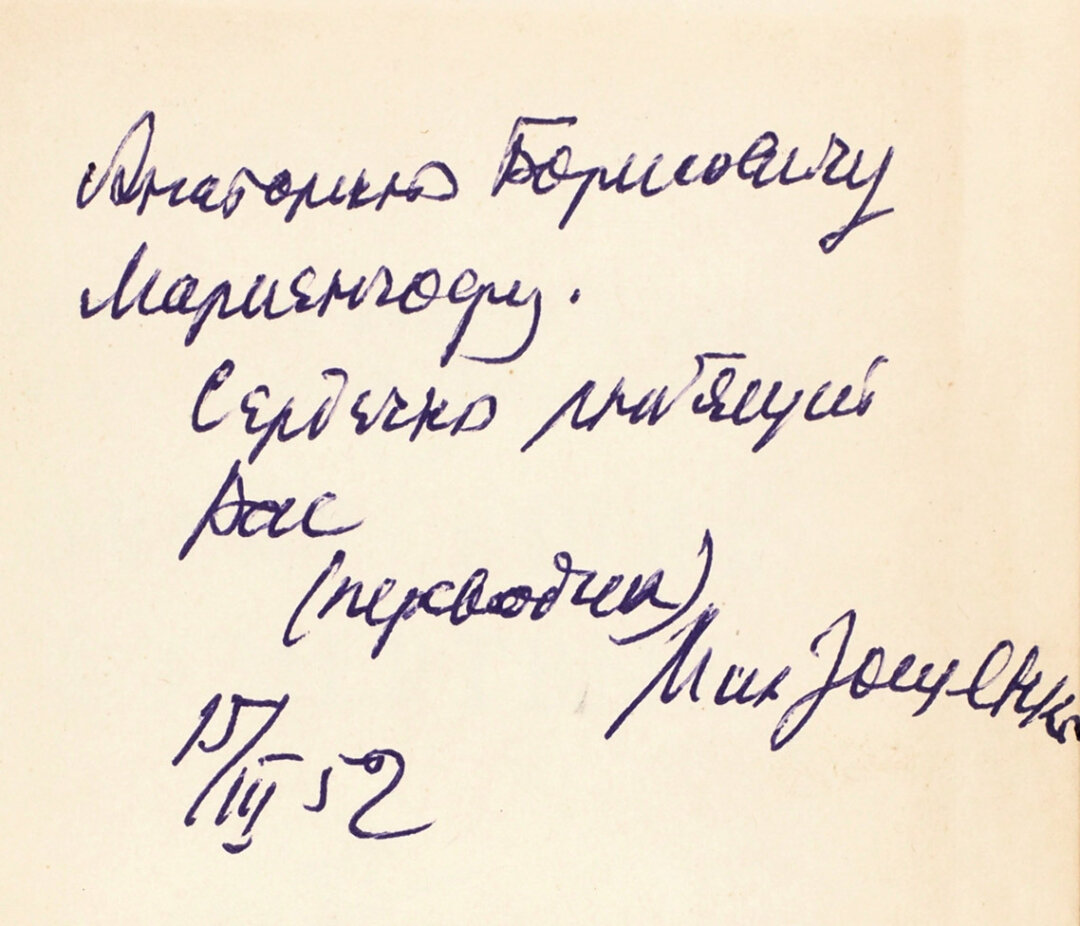 Анатолию Борисовичу
Мариенгофу.
Сердечно любящий
Вас
(переводчик)
Мих Зощенко
15/III 52